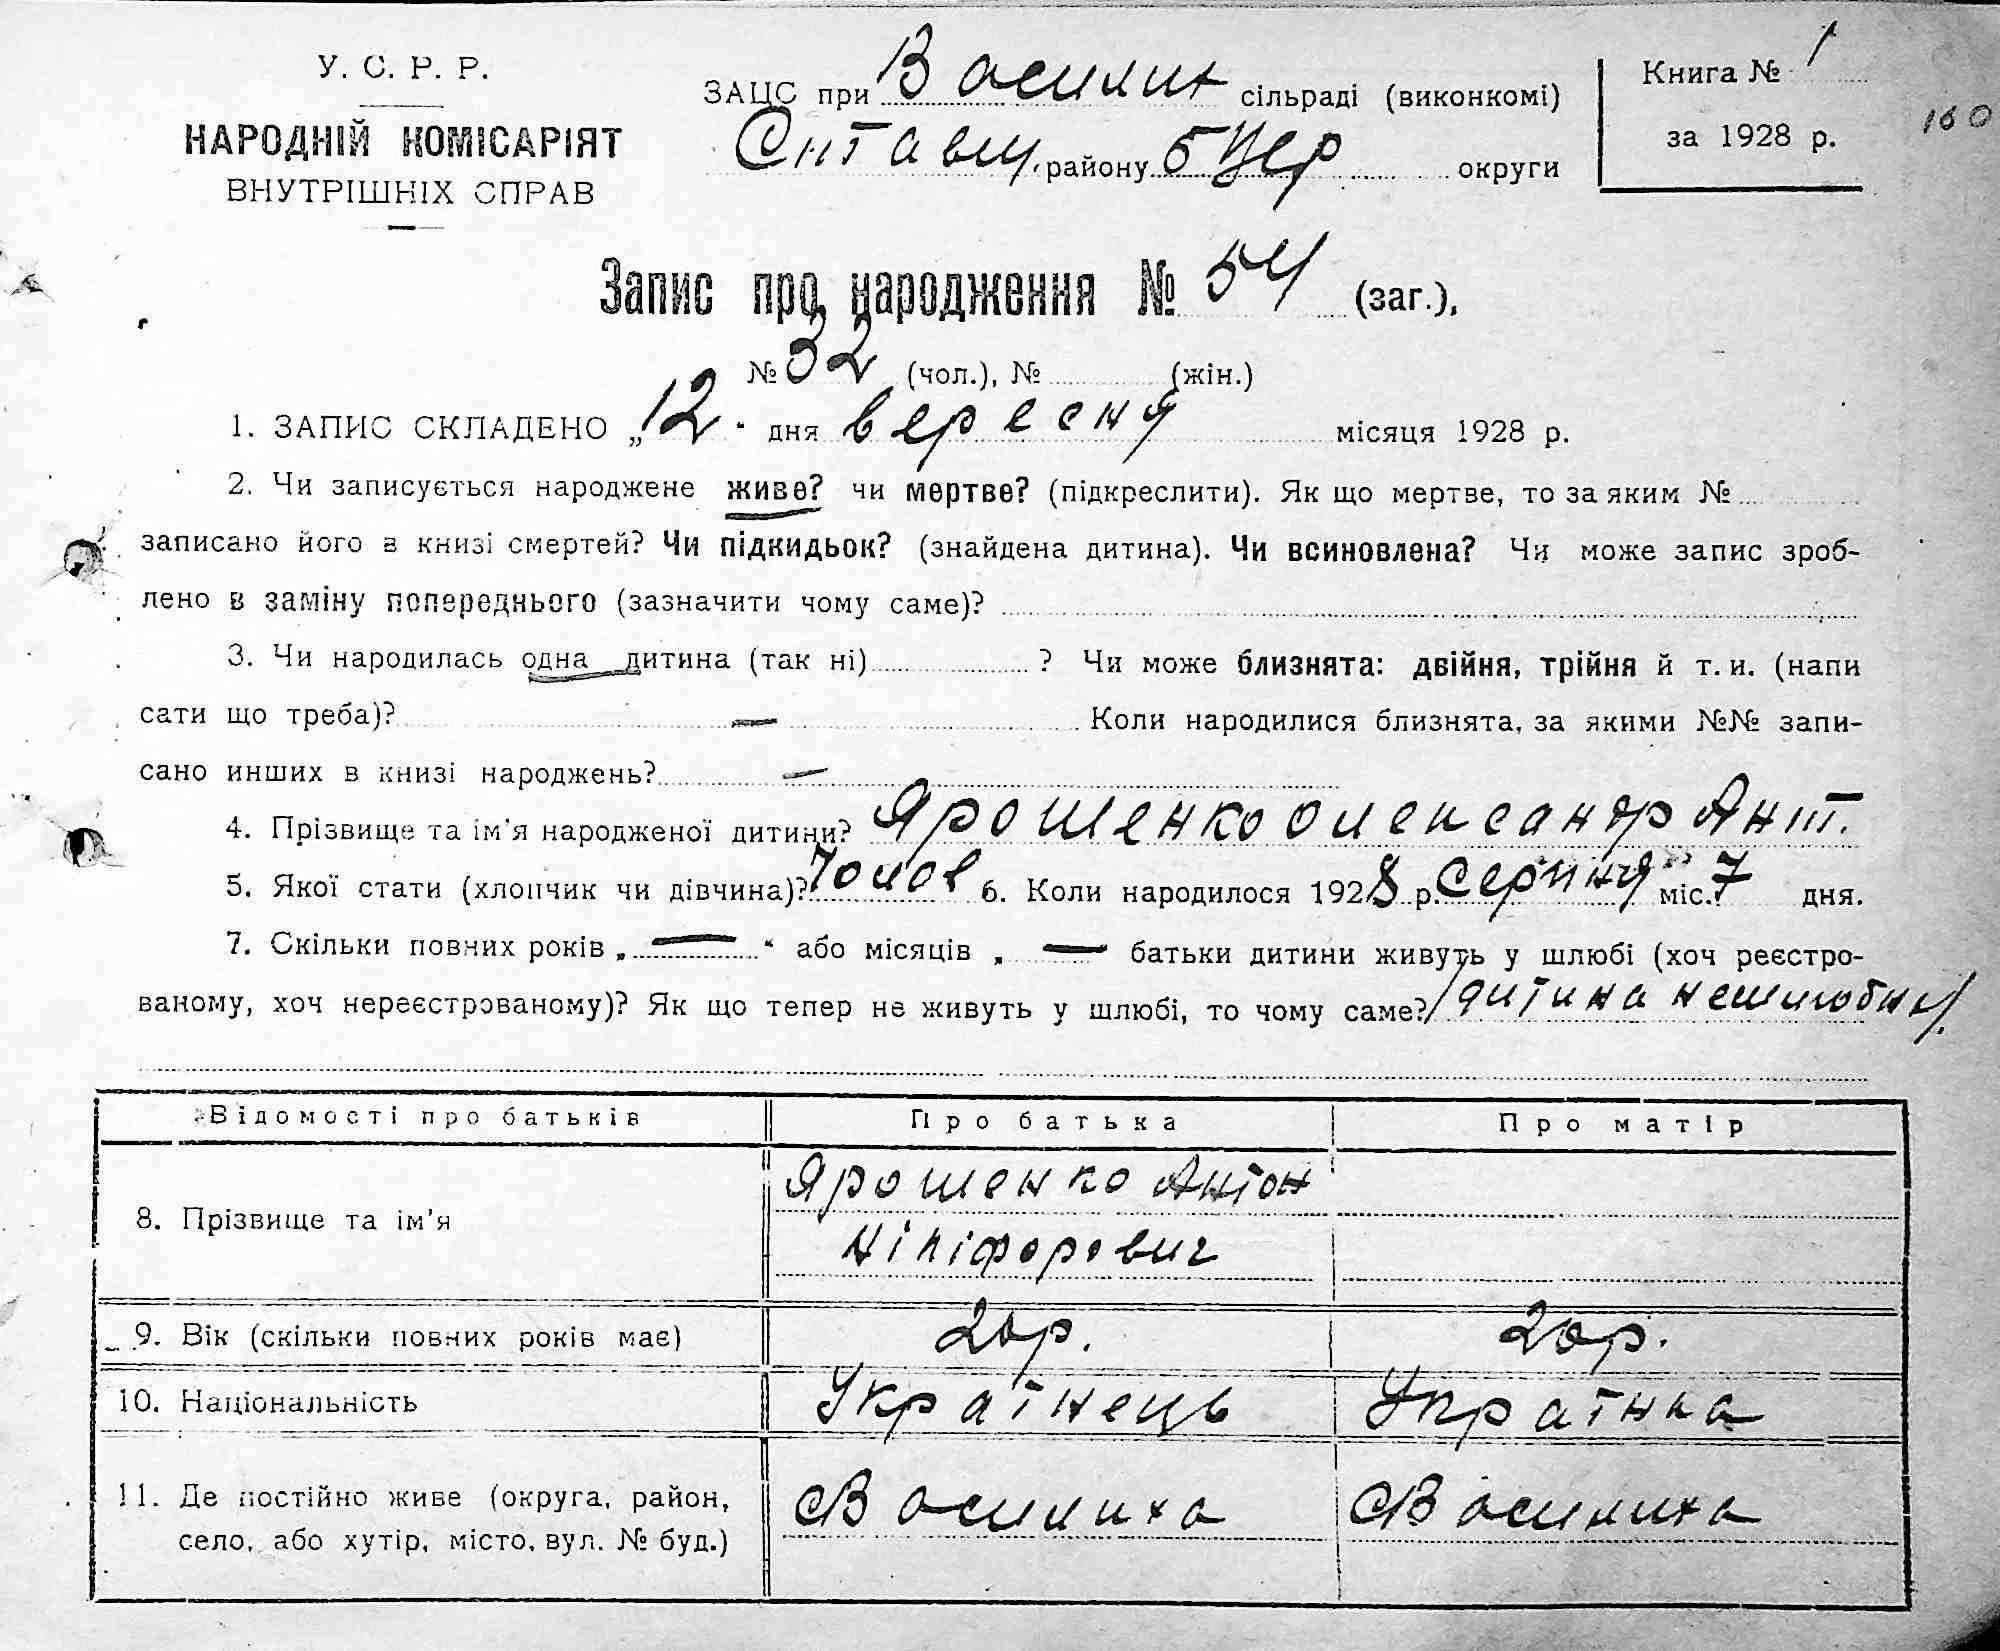 У. С. Р. Р.
НАРОДНІЙ КОМІСАРІЯТ
ВНУТРІШНІХ СПРАВ
ЗАЦС при Василих сільраді (виконкомі)
району БЦер округи
Книга № 1
за 1928 р.
160
Запис про народження № 54 (заг.),
№ 32 (чол.), № (жін.)
1. ЗАПИС СКЛАДЕНО „12“ дня вересня місяця 1928 р.
2. Чи записується народжене живе? чи мертве? (підкреслити). Як що мертве, то за яким №
записано його в книзі смертей? Чи підкидьок? (знайдена дитина). Чи всиновлена? Чи може запис зроб-
лено в заміну попереднього (зазначити чому саме)?
3. Чи народилась одна дитина (так ні) ? Чи може близнята: двійня, трійня й т. и. (напи
сати що треба)? — Коли народилися близнята, за якими №№ запи-
сано инших в книзі народжень? —
4. Прізвище та ім'я народженої дитини? Ярошенко Олександр Ант.
5. Якої стати (хлопчик чи дівчина)? Чолов 6. Коли народилося 1928 р. Серпня міс. 7 дня.
7. Скільки повних років „—“ або місяців „ — батьки дитини живуть у шлюбі (хоч реєстро-
ваному, хоч нереєстрованому)? Як що тепер не живуть у шлюбі, то чому саме? /дитина нешлюбна/.
Відомості про батьків Про батька Про матір
8. Прізвище та ім'я Ярошенко Антон
Нікіфорович
9. Вік (скільки повних років має) 20р. 20р.
10. Національність Українець Українка
11. Де постійно живе (округа, район,
село, або хутір, місто, вул. № буд.) сВасилиха сВасилиха